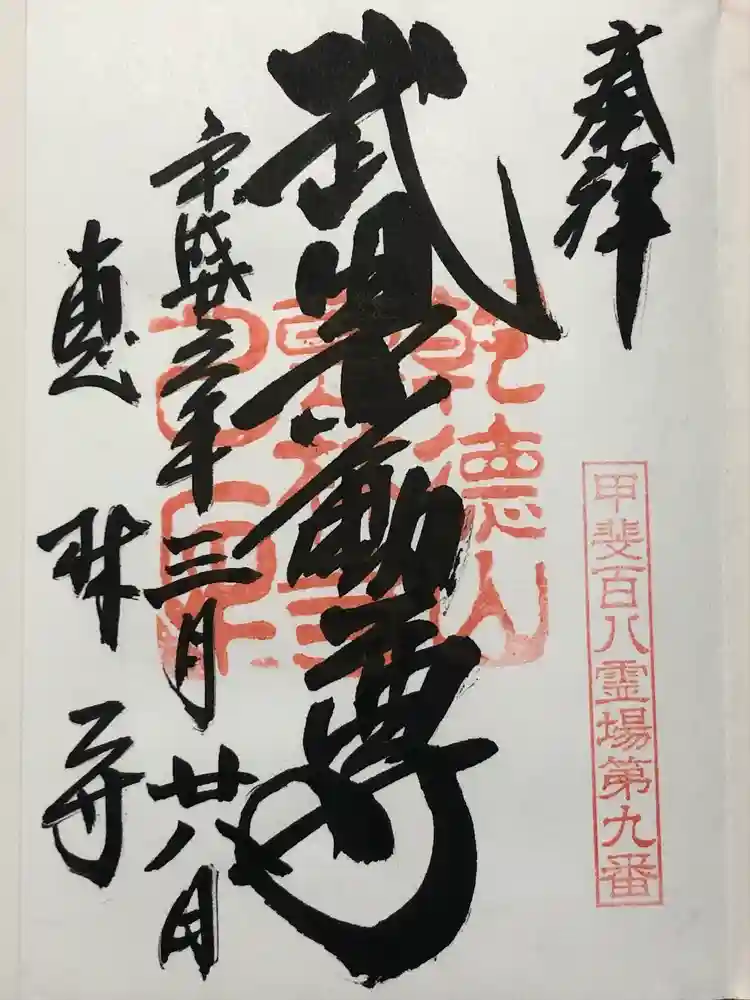 奉拝
甲斐百八霊場第九番
武田不動尊
乾徳山
平成年三月廿八日
恵林寺